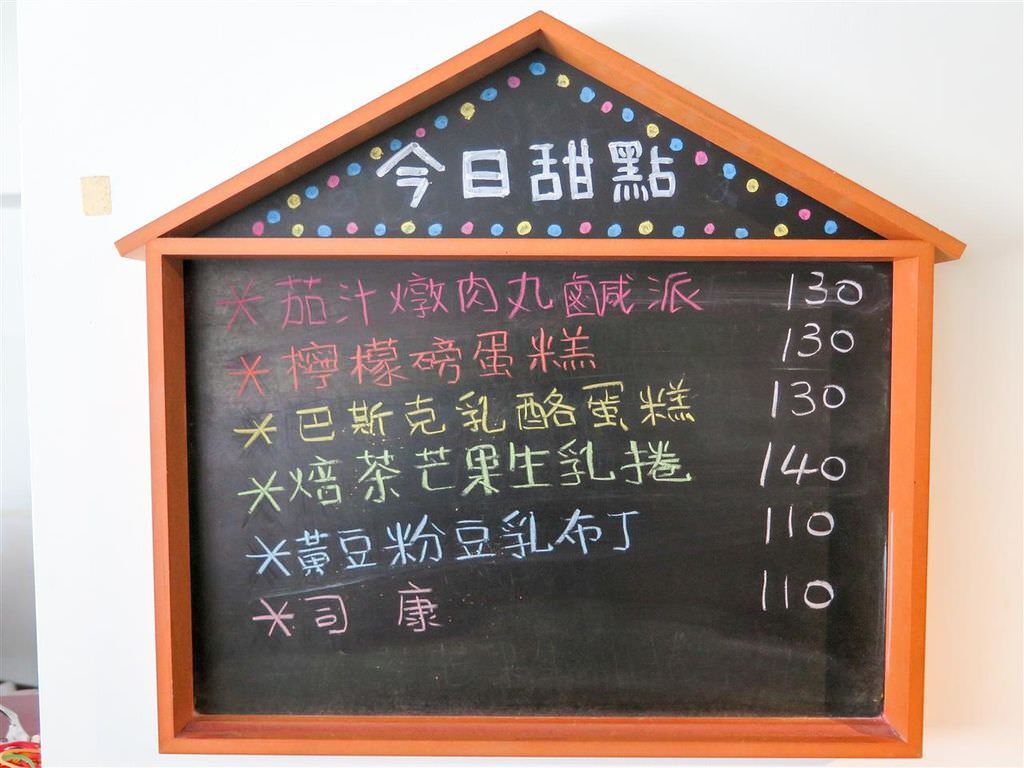 今日甜點
*茄汁燉肉丸鹹派 130
*檸檬磅蛋糕 130
*巴斯克乳酪蛋糕 130
*焙茶芒果生乳捲 140
*黃豆粉豆乳布丁 110
*司康 110